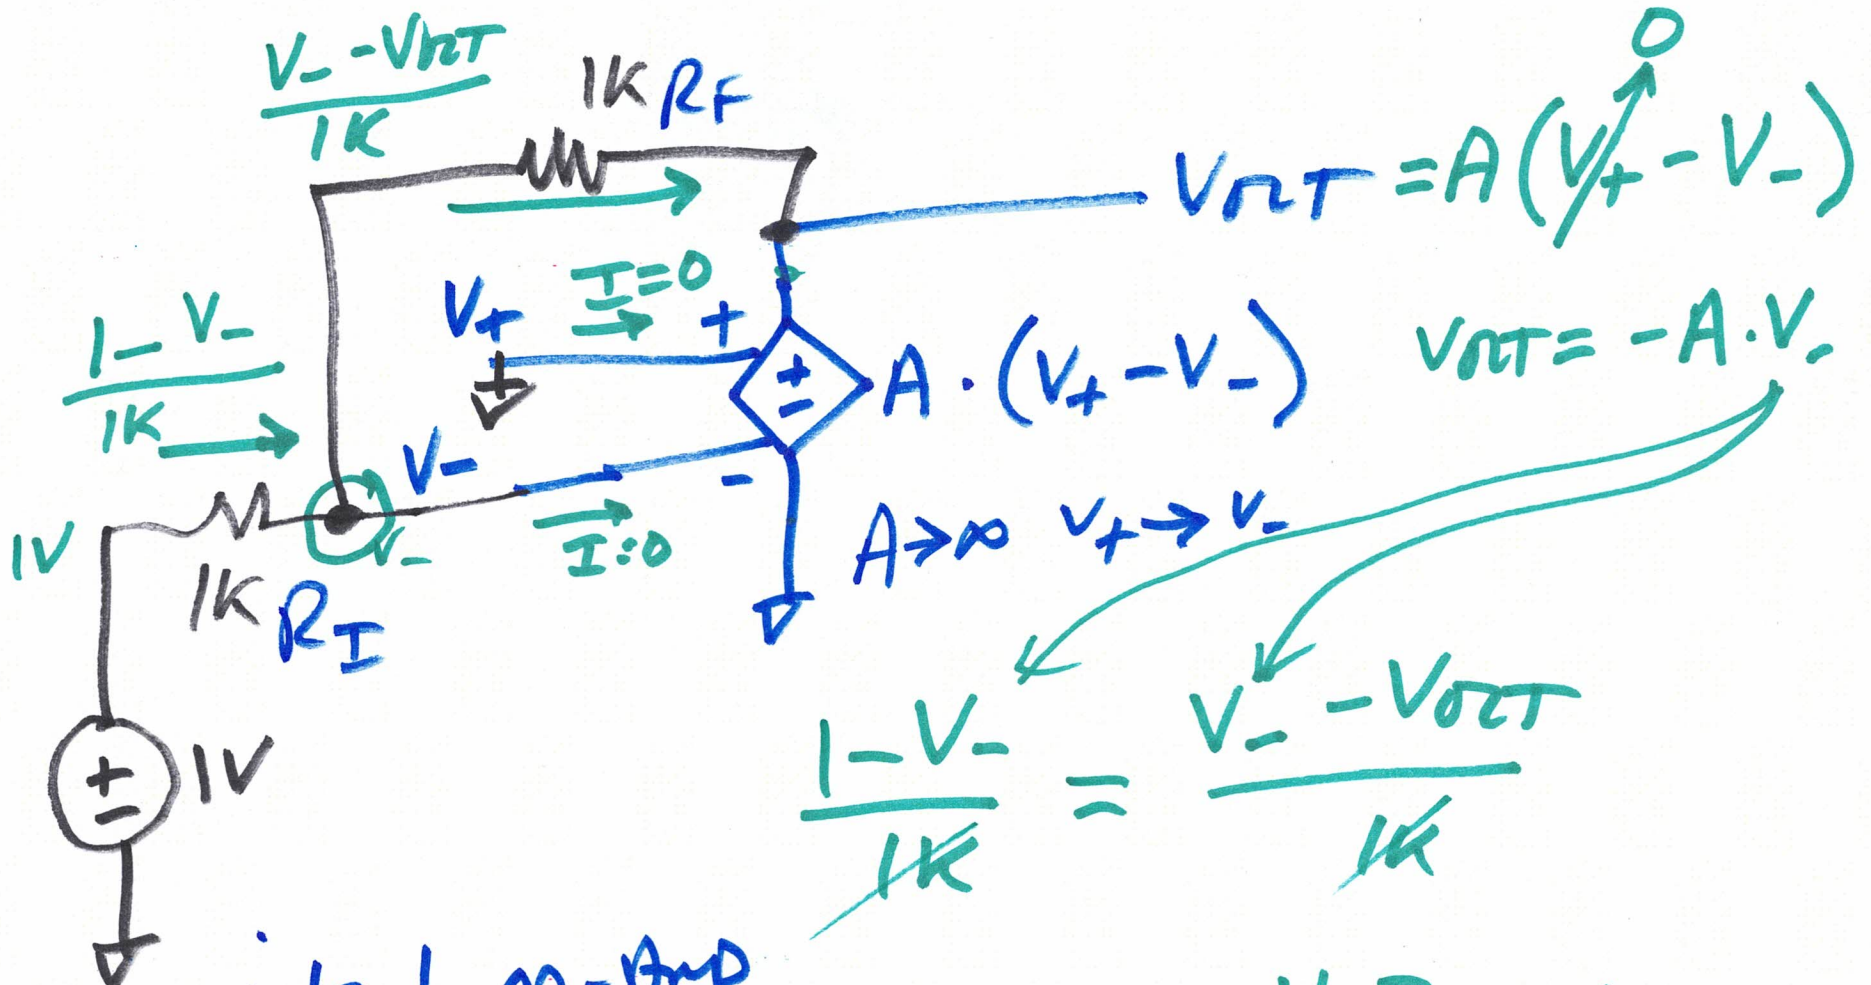 V- - VOUT
1K
1K RF
0
VOUT = A(V+ - V-)
I=0
V+
+
A · (V+ - V-)
VOUT = -A·V-
1 - V-
1K
V-
-
V-
I=0
A→∞ V+→V-
1V
1K RI
1V
1 - V-
1K
=
V- - VOUT
1K